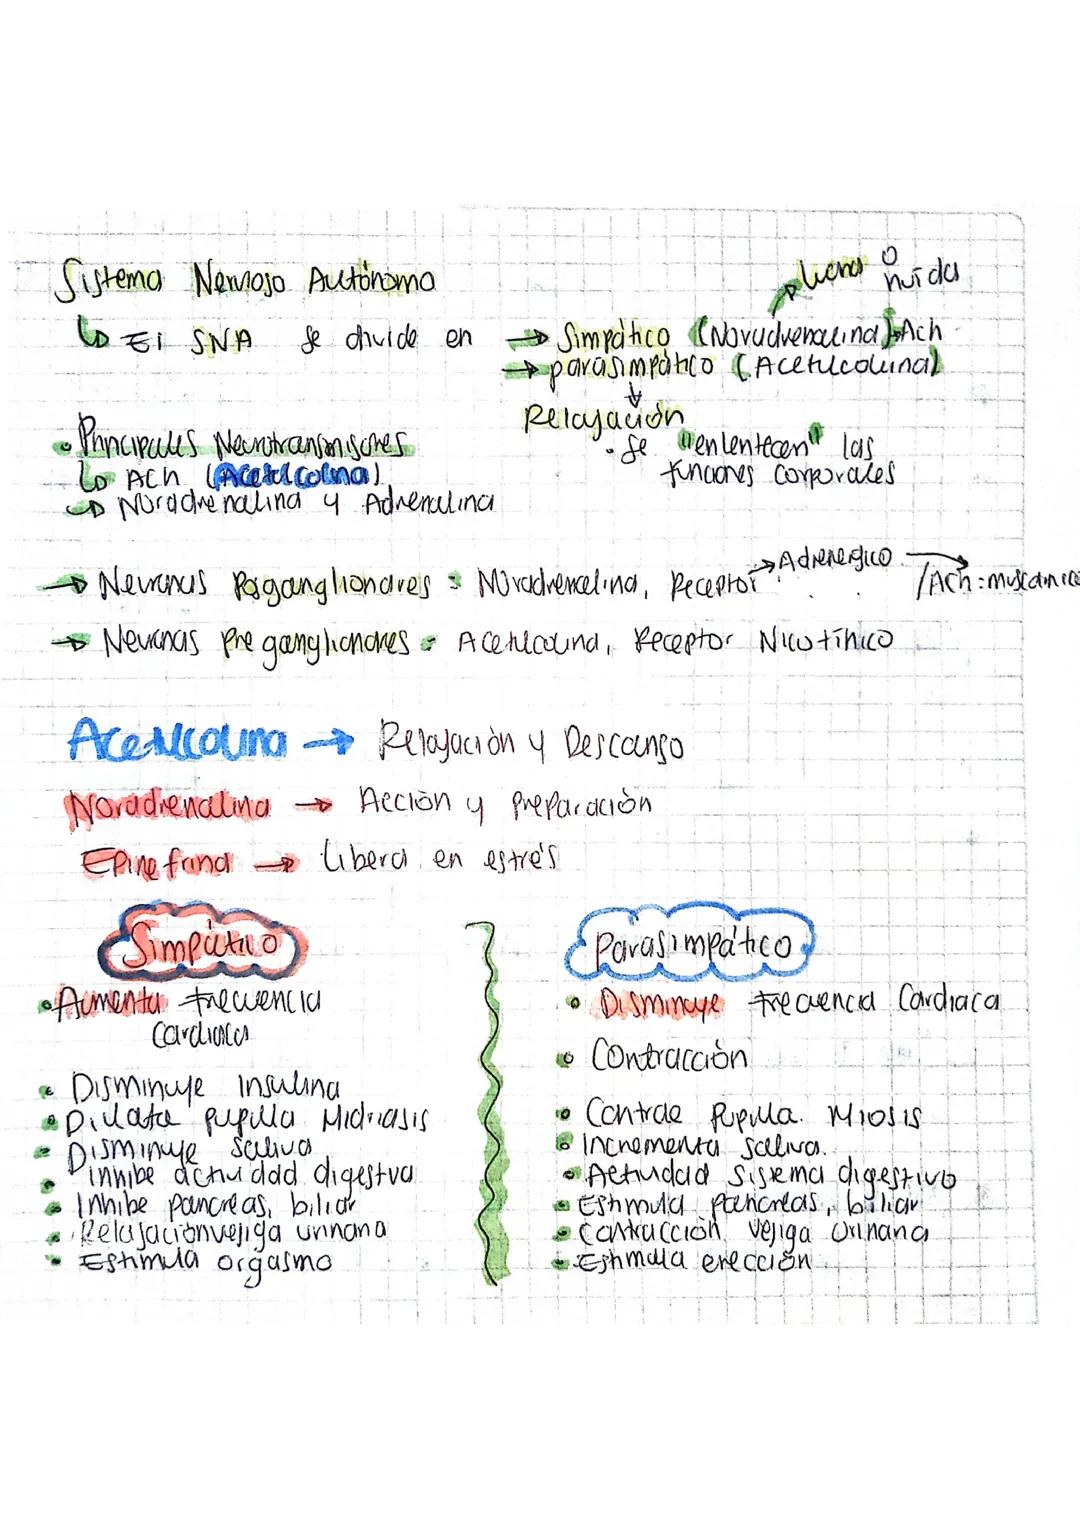 Sistema Nervioso Autónomo
lucha o huida
El SNA se divide en → Simpático (Noradrenalina) Ach
→ parasimpático (Acetilcolina)
Relajación
• Se "enlentecen" las
funciones corporales
• Principales Neurotransmisores
↳ ACh (Acetilcolina)
↳ Noradrenalina y Adrenalina
→ Neuronas Posganglionares: Noradrenalina, Receptor → Adrenergico → /Ach: muscarinico
→ Neuronas Preganglionares: Acetilcolina, Receptor Nicotínico
Acetilcolina → Relajación y Descanso
Noradrenalina → Acción y preparación
Epinefrina → libera en estrés
Simpático
• Aumenta frecuencia
Cardiaca
• Disminuye insulina
• Dilata pupila Midriasis
• Disminuye Saliva
• inhibe actividad digestiva
• Inhibe pancreas, biliar
• Relajación vejiga urinaria
• Estimula orgasmo
Parasimpático
• Disminuye frecuencia Cardiaca
• Contracción
• Contrae Pupila. Miosis
• Incrementa Saliva.
• Actividad Sistema digestivo
• Estimula pancreas, biliar
• Contracción vejiga Urinaria
• Estimula erección